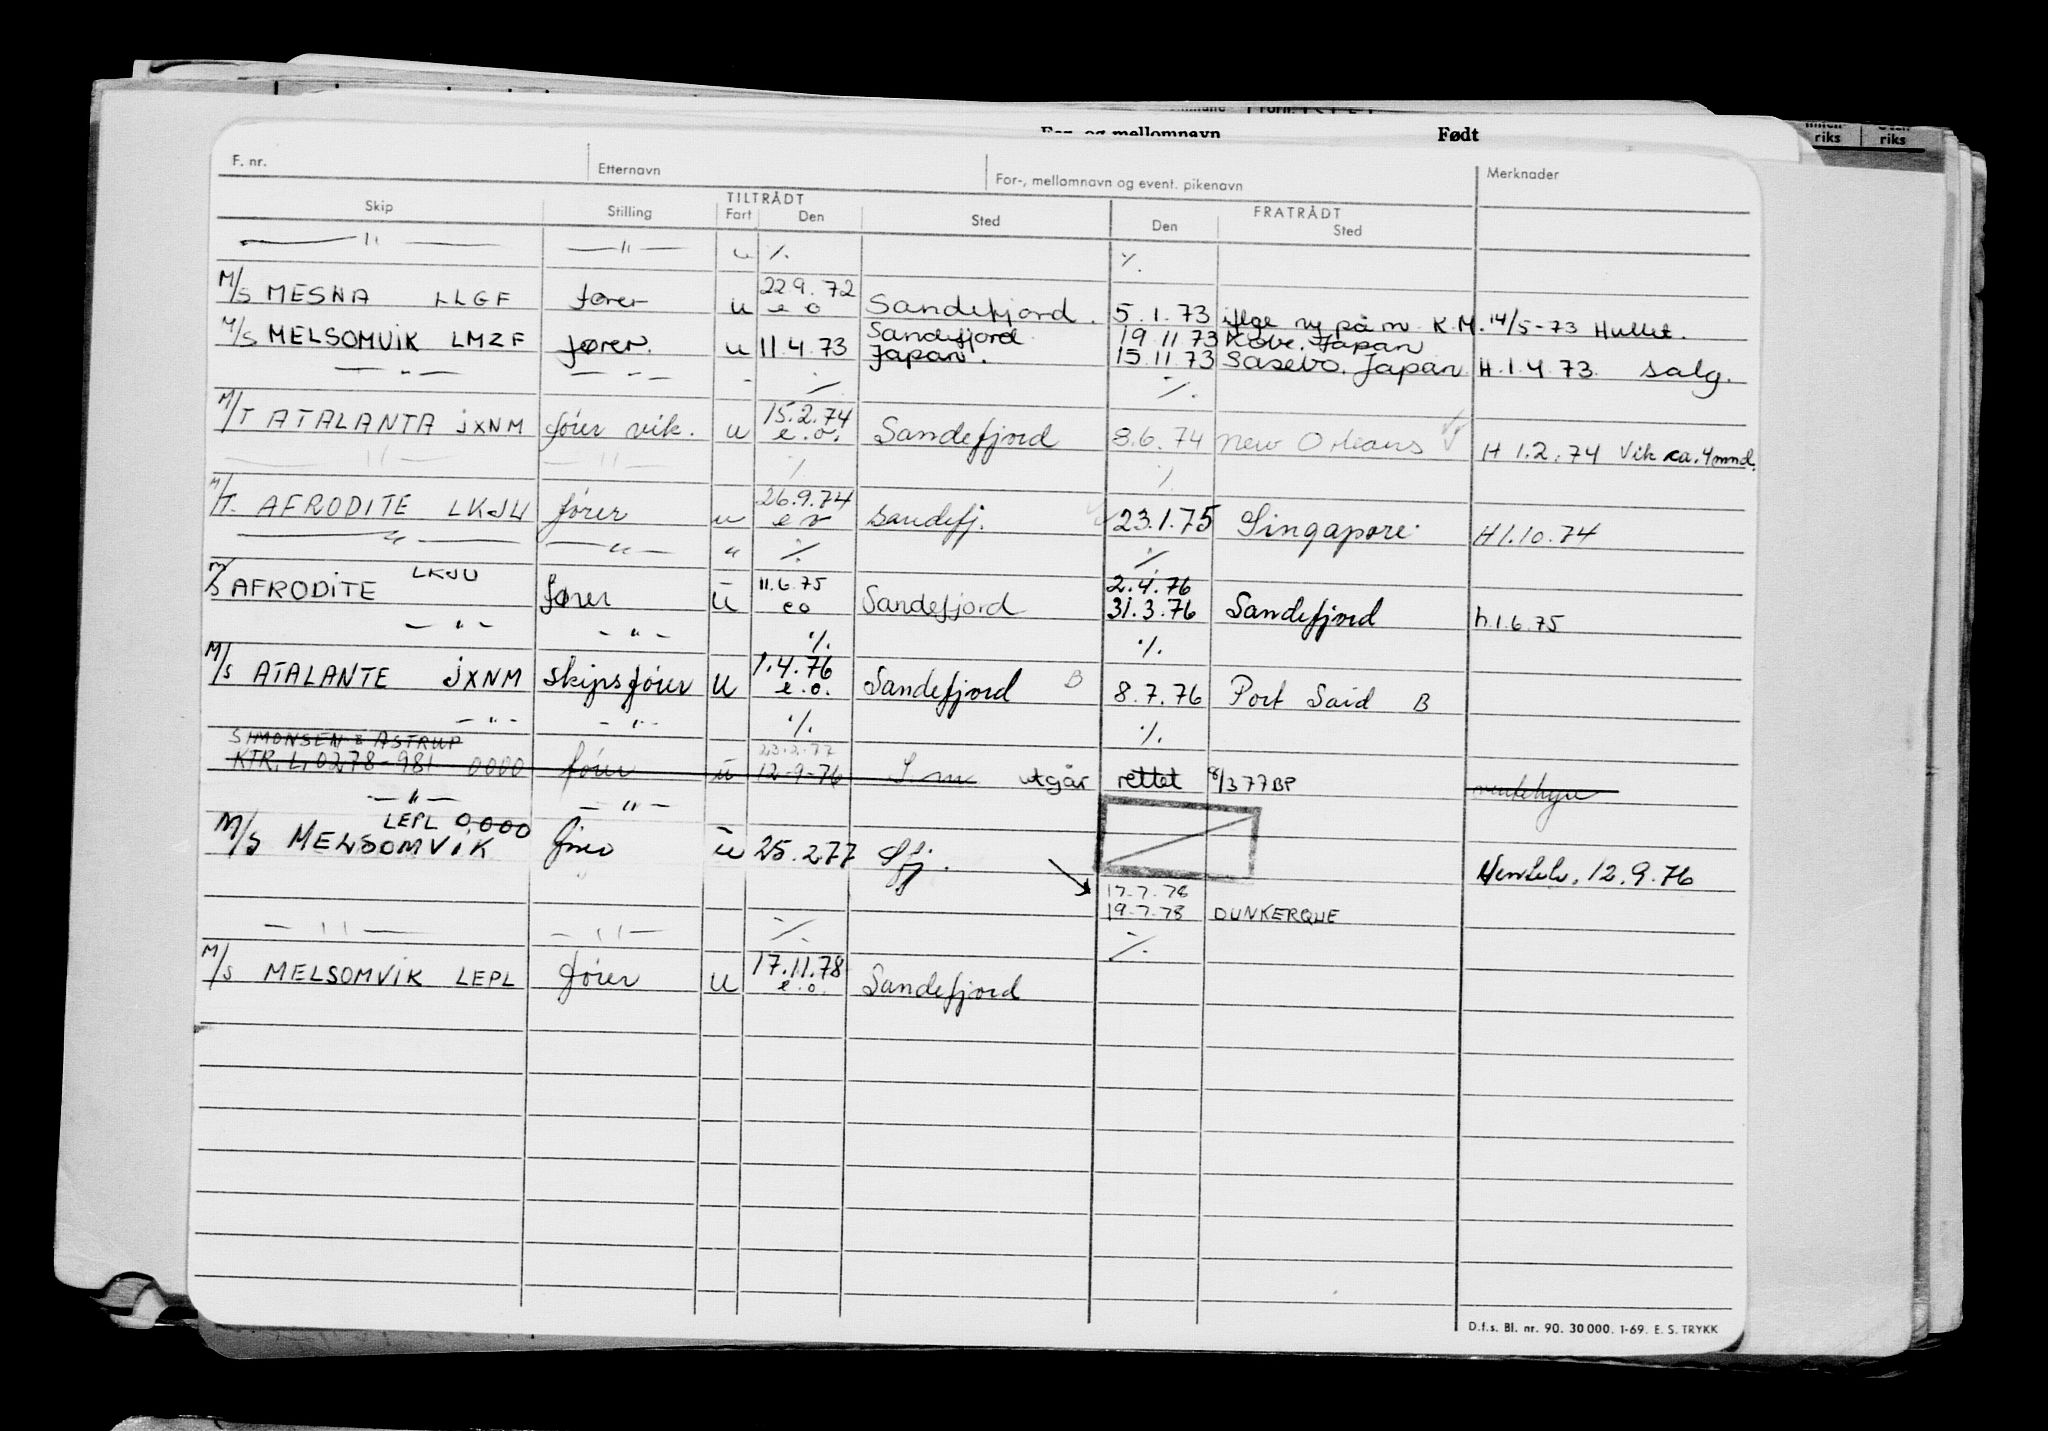 Født
riks riks
F. nr. Etternavn For-, mellomnavn og event. pikenavn Merknader
TILTRÅDT FRATRÅDT
Skip Stilling Fart Den Sted Den Sted
— " — — " — u %. %.
M/S MESNA LLGF fører u 22 9. 72 e o Sandefjord. 5. 1. 73 iflge ny på m. K.M. 14/5-73 Hullet.
M/S MELSOMVIK LMZF fører. u 11.4.73 Sandefjord Japan. 19 11 73 Kobe. Japan
15.11.73 Sasebo. Japan H.1.4.73. salg.
— " — — " — - %. %.
M/T ATALANTA JXNM fører vik. u 15.2.74 e.o. Sandefjord 8.6.74 New Orleans H 1.2.74 Vik ca. 4 mnd.
— " — — " — %. %.
M/T. AFRODITE LKJU fører u 26.9.74 e o Sandefj. 23.1.75 Singapore. H 1.10.74
— " — — " — " %. %.
M/S AFRODITE LKJU fører u 11.6.75 eo Sandefjord 2.4.76
31.3.76 Sandefjord h.1.6.75
— " — — " — %. %.
M/S ATALANTE JXNM skipsfører u 1.4.76 e.o. Sandefjord B 8.7.76 Port Said B
— " — — " — %. %.
SIMONSEN & ASTRUP
KTR. L. 0278-981 0000 fører u 23.2.77 12-9-76 utgår rettet 8/3 77 BP
— " — — " —
M/S MELSOMVIK LEPL 0.000 fører u 25.2.77 Sfj. 12.9.76
17.7.78
19.7.78 DUNKERQUE
— " — — " — %. %.
M/S MELSOMVIK LEPL fører u 17.11.78 e.o. Sandefjord
D.f.s. Bl. nr. 90. 30 000. 1-69. E. S. TRYKK